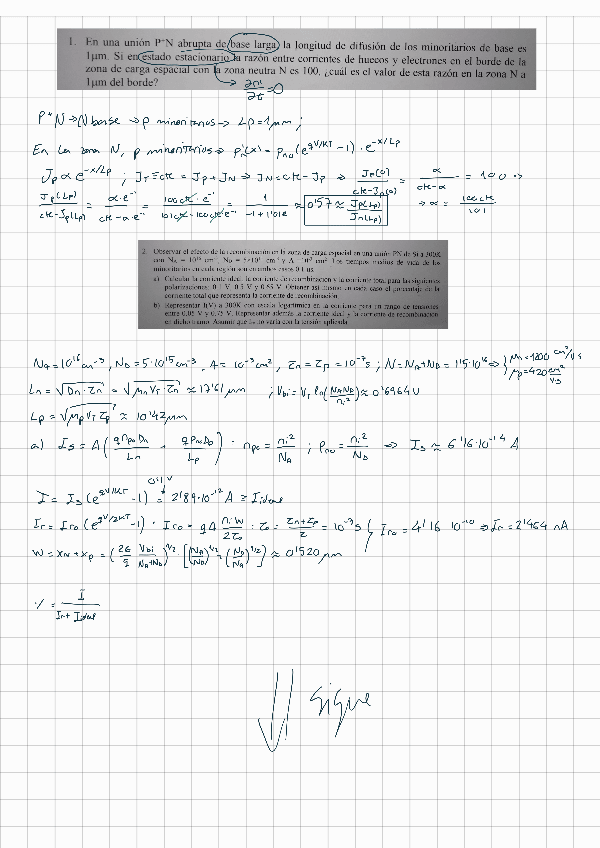 1. En una unión P⁺N abrupta de base larga, la longitud de difusión de los minoritarios de base es
1μm. Si en estado estacionario la razón entre corrientes de huecos y electrones en el borde de la
zona de carga espacial con la zona neutra N es 100, ¿cuál es el valor de esta razón en la zona N a
1μm del borde?
∂n'/∂t = 0
P⁺N → N base → p minoritarios → Lp = 1μm ;
En la zona N, p minoritarios → p'n(x) = pno (e^qV/KT - 1) · e^-x/Lp
Jp ∝ e^-x/Lp ; JT = cte = Jp + JN ⇒ JN = cte - Jp ⇒ Jp(0)/(cte - Jp(0)) = α/(cte - α) = 100 →
→ α = 100cte/101
Jp(Lp)/(cte - Jp(Lp)) = α·e⁻¹/(cte - α·e⁻¹) = 100cte·e⁻¹/(101cte - 100cte·e⁻¹) = 1/(-1+1'01e) ≈ 0'57 ≈ Jp(Lp)/Jn(Lp)
2. Observar el efecto de la recombinación en la zona de carga espacial en una unión PN de Si a 300K
con NA = 10¹⁶ cm⁻³, ND = 5×10¹⁵ cm⁻³ y A = 10⁻³ cm². Los tiempos medios de vida de los
minoritarios en cada región son en ambos casos 0.1 μs.
a) Calcular la corriente ideal, la corriente de recombinación y la corriente total para las siguientes
polarizaciones: 0.1 V, 0.3 V y 0.55 V. Obtener así mismo en cada caso el porcentaje de la
corriente total que representa la corriente de recombinación.
b) Representar I(V) a 300K con escala logarítmica en la corriente para un rango de tensiones
entre 0.05 V y 0.75 V. Representar además la corriente ideal y la corriente de recombinación
en dicho rango. Asumir que no varía con la tensión aplicada
NA = 10¹⁶ cm⁻³, ND = 5·10¹⁵ cm⁻³, A = 10⁻³ cm², τn = τp = 10⁻⁷ s ; N = NA + ND = 1'5·10¹⁶ ⇒ { μn = 1200 cm²/V·s
μp = 420 cm²/V·s
Ln = √Dn·τn = √μn VT τn ≈ 17'61 μm ; Vbi = VT ln(NAND/ni²) ≈ 0'6964 V
Lp = √μp VT τp ≈ 10'42 μm
a) Is = A(q npo Dn/Ln + q Pno Dp/Lp) · npo = ni²/NA ; Pno = ni²/ND ⇒ Is ≈ 6'16·10⁻¹⁴ A
0'1V
I = Is (e^qV/KT - 1) = 2'89·10⁻¹² A = Iideal
Ir = Iro (e^qV/2KT - 1) · Iro = qA ni W/2τo ; τo = (τn+τp)/2 = 10⁻⁷ s } Iro = 4'16·10⁻¹⁰ ⇒ Ir = 2'464 nA
W = xN + xp = (2ε/q Vbi/(NA+ND))^1/2 · [(NA/ND)^1/2 + (ND/NA)^1/2] ≈ 0'520 μm
% = I/(Ir + Iideal)
sigue